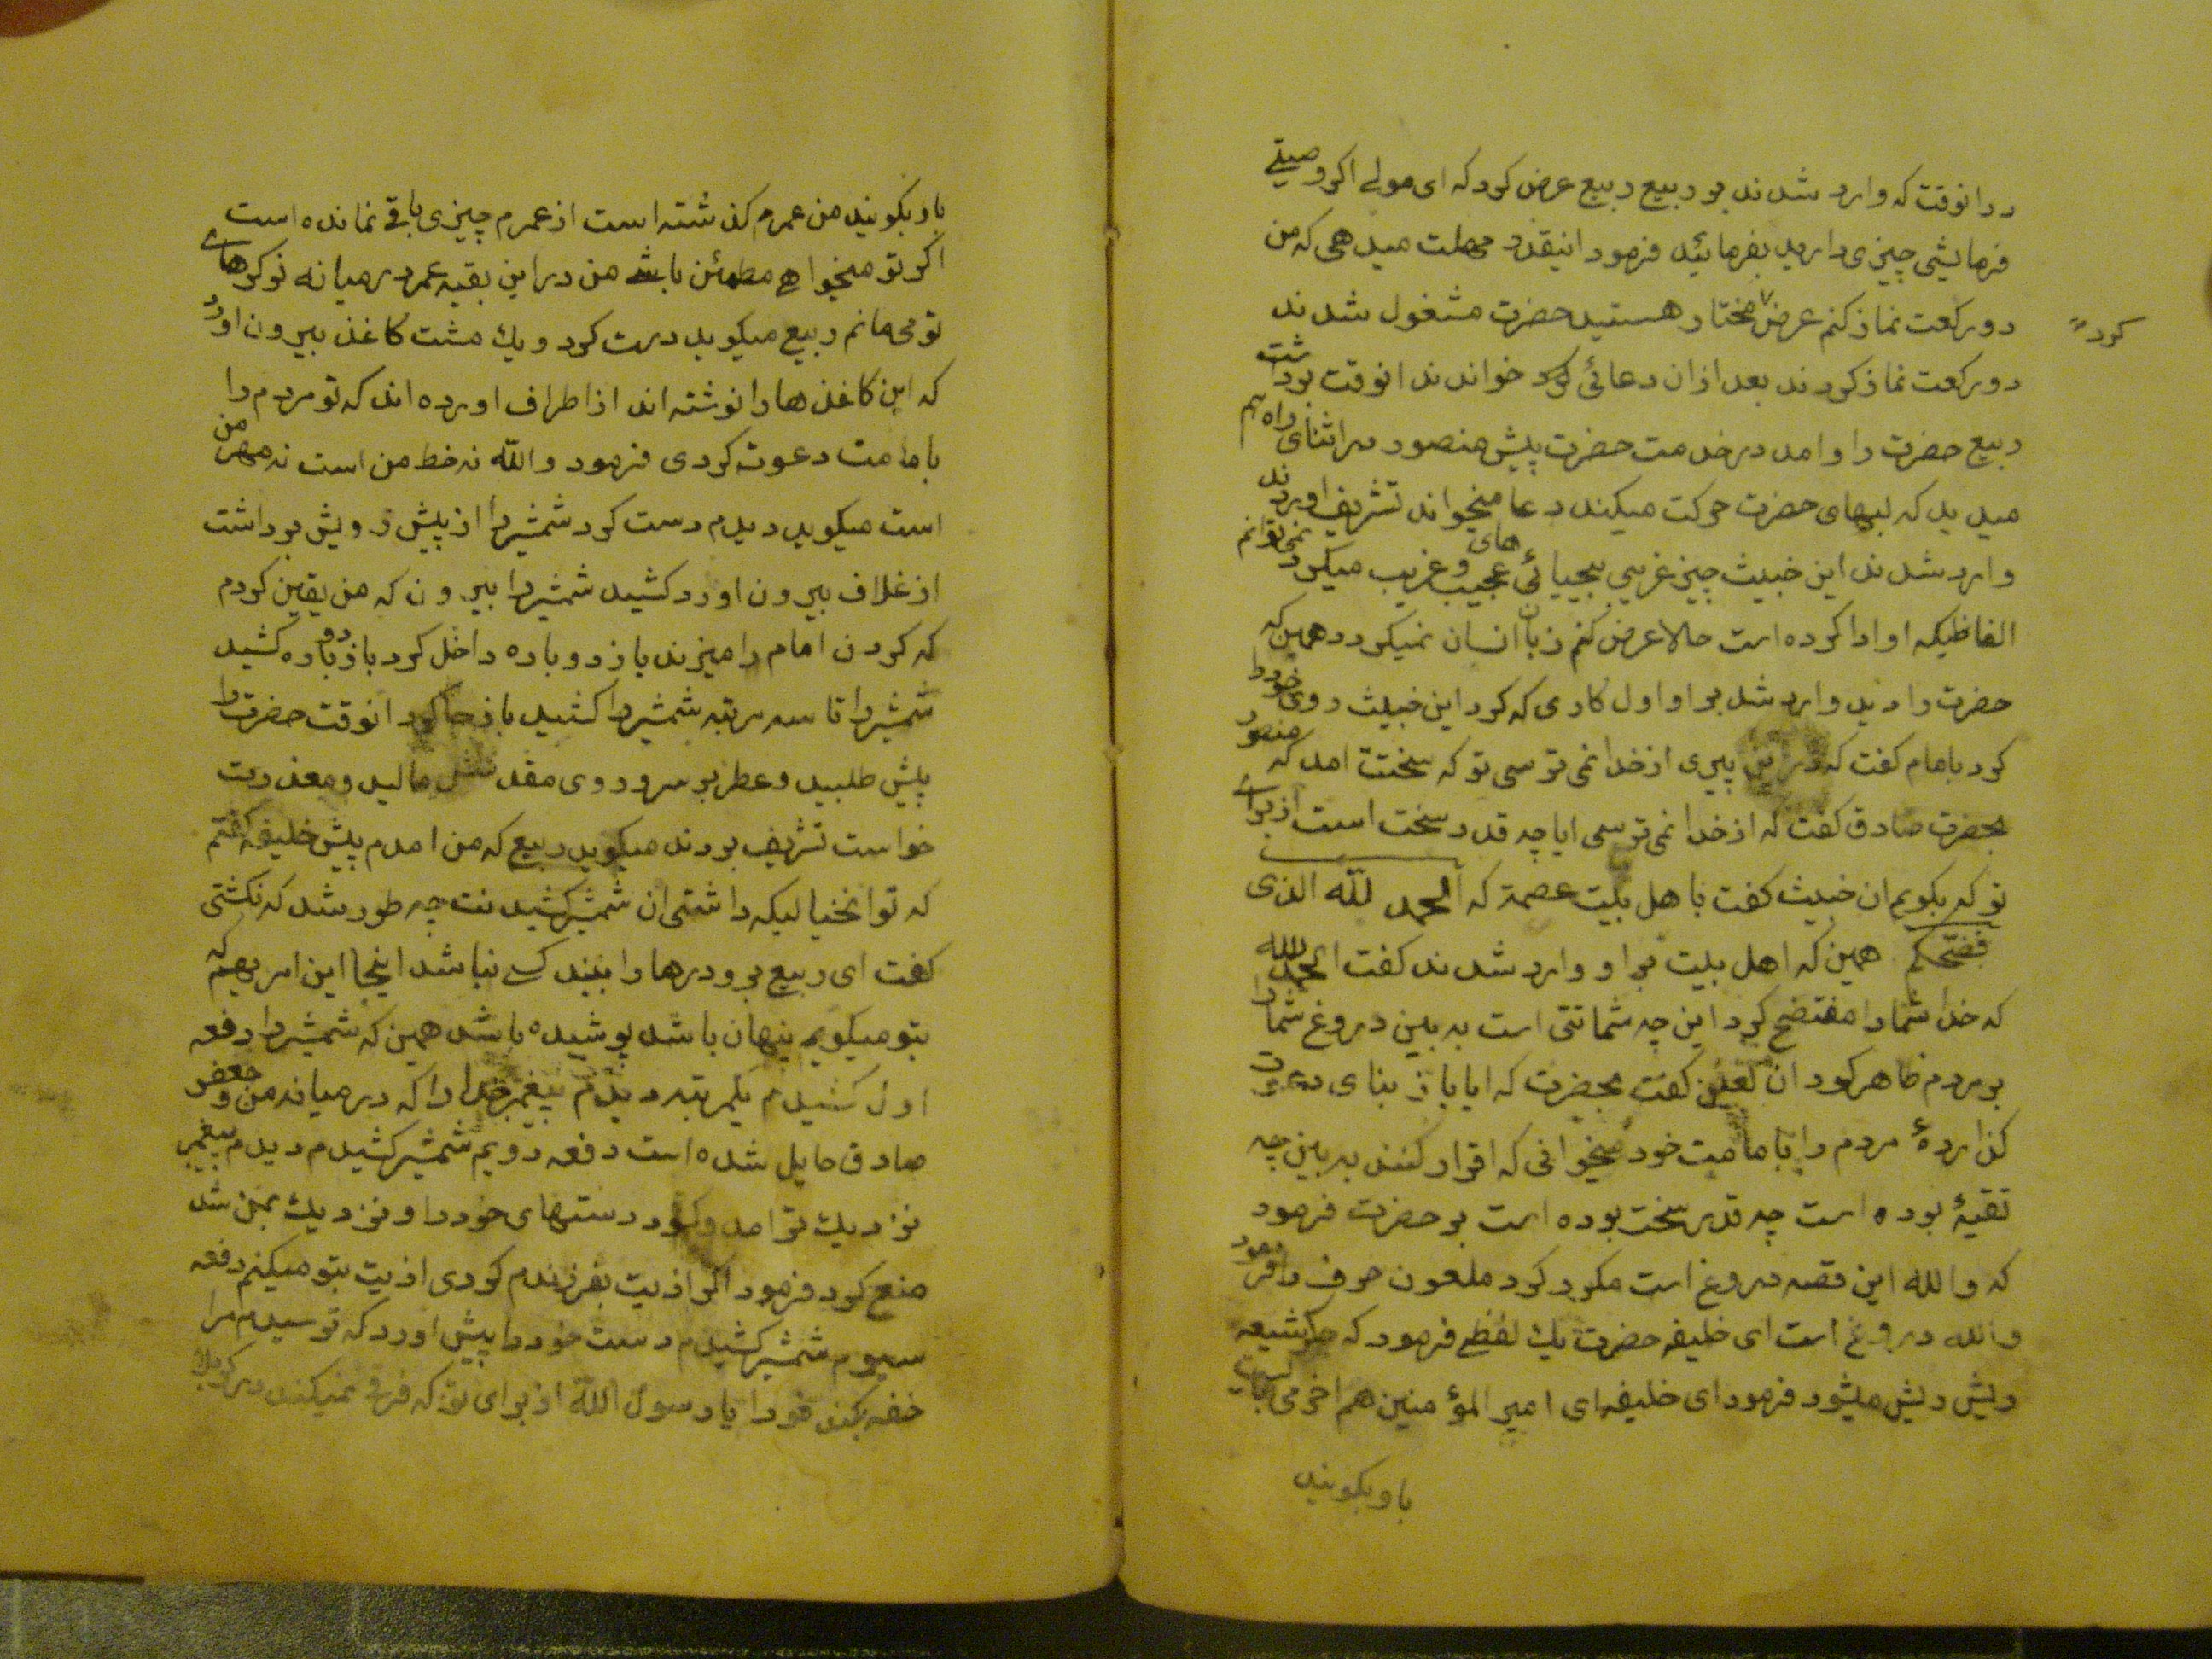 درانوقت که وارد شدند بر ربیع ربیع عرض کرد که ای مولے اکر وصیتے
فرمایشی چیزی دارید بفرمائید فرمود اینقدر مهلت میدهی که من
دو رکعت نماز کنم عرض مختار هستید حضرت مشغول شدند
کرد
دو رکعت نماز کردند بعد ازان دعائی کرد خواندند انوقت برداشت
ربیع حضرت را و امد در خدمت حضرت پیش منصور در اثنای راه هم
میدید که لبهای حضرت حرکت میکند دعا میخواند تشریف اوردند
وارد شدند این خبیث چیز غریبی بیحیائی های عجیب و غریب میکرد نمی توانم
الفاظیکه او ادا کرده است حالا عرض کنم زبان انسان نمیکردد همین که
حضرت را دید وارد شد بر او اول کاری که کرد این خبیث روی خود را
کرد بامام کفت که در این پیری از خدا نمی ترسی تو که سختت امد که منصور
بحضرت صادق کفت که از خدا نمی ترسی ایا چه قدر سخت است از براے
تو که بکویم ان خبیث کفت با هل بیت عصمة که الحمد لله الذی
فضحکم همین که اهل بیت بر او وارد شدند کفت الحمد لله
که خدا شما را مفتضح کرد این چه شماتتی است به بین دروغ شما را
بر مردم ظاهر کرد ان لعین کفت بحضرت که ایا باز بنای دعوت
کذاردهٔ مردم را بامامت خود میخوانی که اقرار کنند به بین چه
تقیهٔ بوده است چه قدر سخت بوده است بر حضرت فرمود
که والله این قصه دروغ است مکرر کرد ملعون حرف را فرمود
والله دروغ است ای خلیفه حضرت یك لفظے فرمود که جکر شیعه
ریش ریش میشود فرمود ای خلیفه ای امیر المؤمنین هم اخر می بایست
باو بکویند
باو بکویند من عمرم کذشته است از عمرم چیزی باقے نمانده است
اکر تو میخواهے مطمئن باشے من در این بقیه عمر در میانه نوکرهاے
تو می مانم ربیع میکوید دست کرد و یك مشت کاغذ بیرون اورد
که این کاغذ ها را نوشته اند از اطراف اورده اند که تو مردم را
بامامت دعوت کردی فرمود والله نه خط من است نه مهر من
است میکوید دیدم دست کرد شمشیر را از پیش رویش برداشت
از غلاف بیرون اورد کشید شمشیر را بیرون که من یقین کردم
که کردن امام را میزند باز دوباره داخل کرد باز دوباره کشید
شمشیر را تا سه مرتبه شمشیر را کشید باز جا کرد انوقت حضرت را
پیش طلبید و عطر بر سر و روی مقدسش مالید و معذرت
خواست تشریف بردند میکوید ربیع که من امدم پیش خلیفه کفتم
که تو انخیالیکه داشتی ان شمشیر کشیدنت چه طور شد که نکشتی
کفت ای ربیع برو درها را ببند کسے نباشد اینجا این امر بهم که
بتو میکویم پنهان باشد پوشیده باشد همین که شمشیر را دفعه
اول کشیدم یکمرتبه دیدم پیغمبر خدا را که در میانه من و جعفر
صادق حایل شده است دفعه دویم شمشیر کشیدم دیدم پیغمبر
نزدیك تر امد و کرد دستهای خود را و نزدیك بمن شد
منع کرد فرمود اکر اذیت بفرزندم کردی اذیت بتو میکنم دفعه
سیوم شمشیر کشیدم دست خود را پیش اورد که ترسیدم مرا
خفه بکند فورا یا رسول الله از برای تو که فرق نمیکند در کربلا